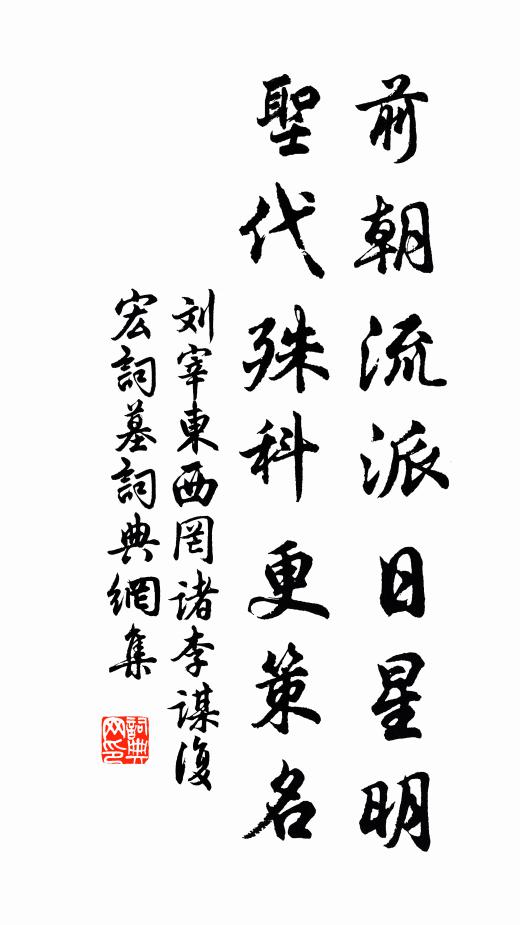 前朝流派日星明
聖代殊科更策名
刘宰東西罔诸李谋復
宏詞墓詞典網集
詞典网印